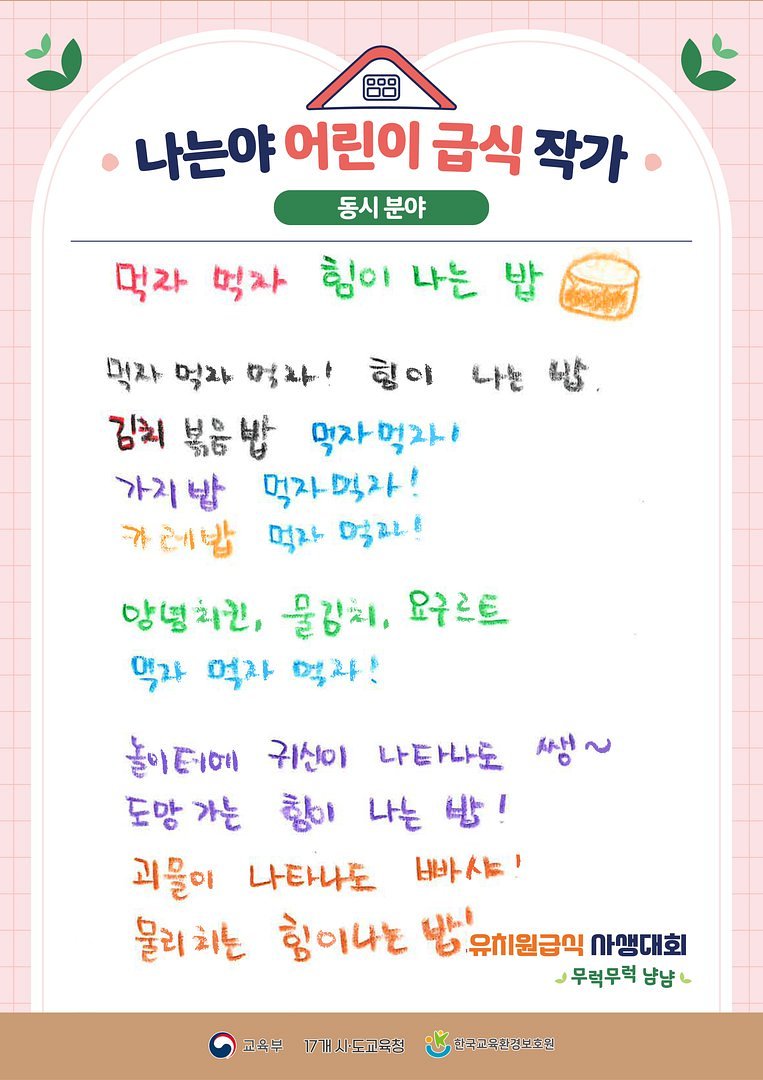 나는야 어린이 급식 작가
동시 분야
먹자 먹자 힘이 나는 밥
먹자 먹자 먹자! 힘이 나는 밥.
김치 볶음밥 먹자먹자!
가지밥 먹자먹자!
카레밥 먹자 먹자!
양념치킨, 물김치, 요구르트
먹자 먹자 먹자!
놀이터에 귀신이 나타나도 쌩~
도망 가는 힘이 나는 밥!
괴물이 나타나도 빠샤!
물리치는 힘이나는 밥!
유치원급식 사생대회
무럭무럭 냠냠
교육부 17개 시·도교육청 한국교육환경보호원